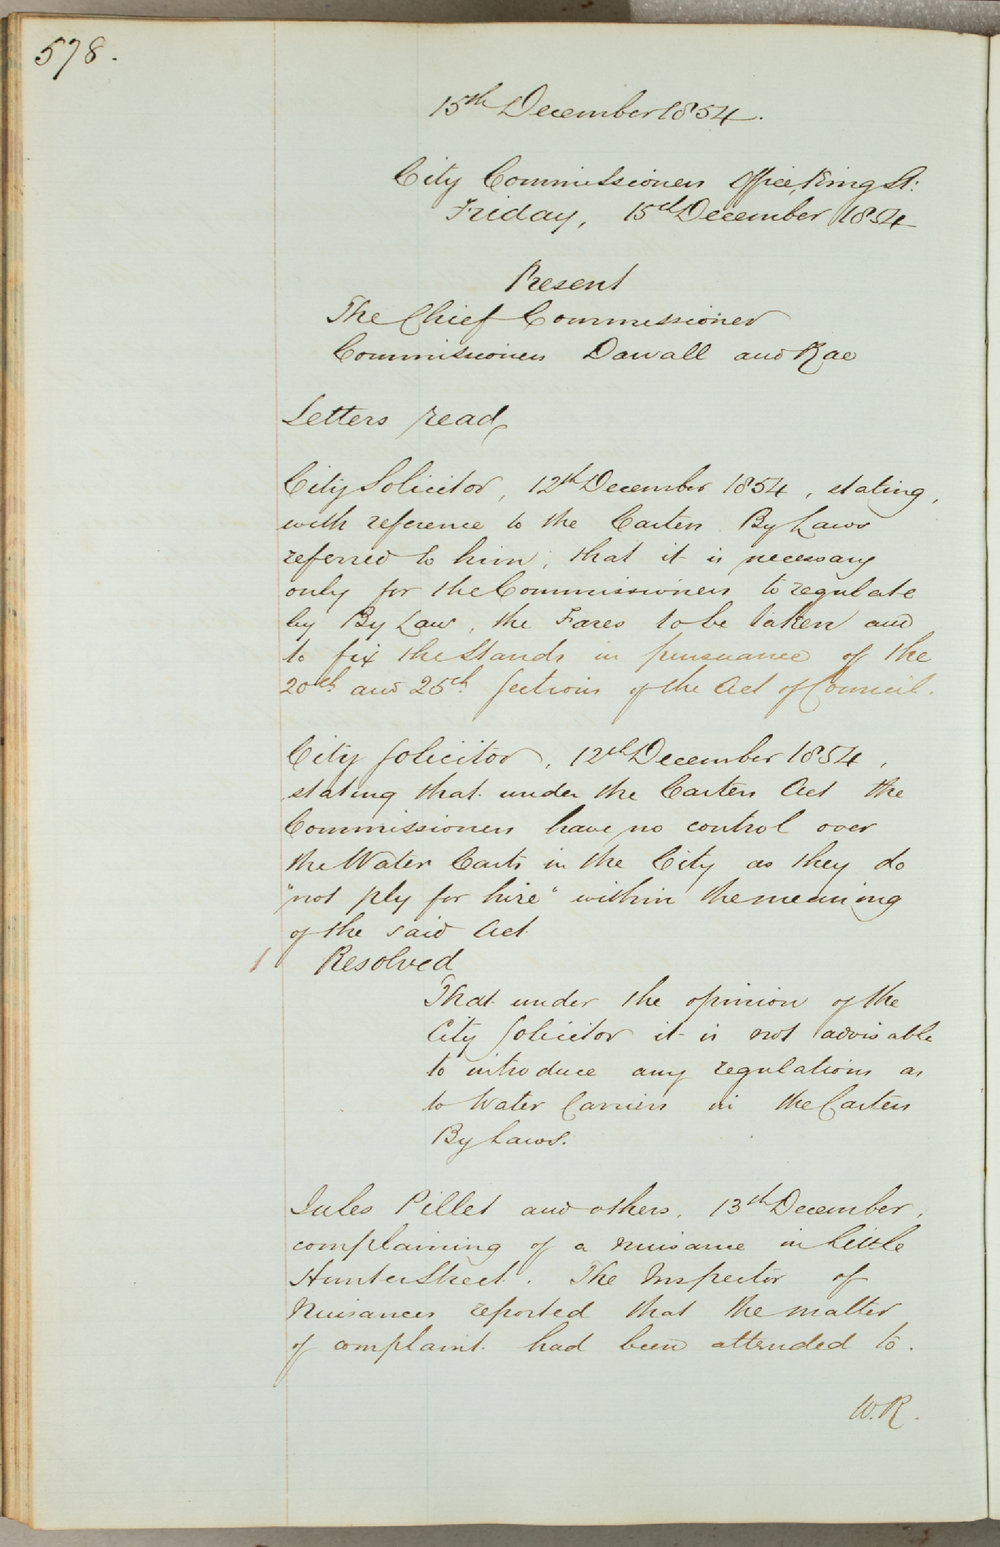 578.
15th December 1854.
City Commissioners Office, King St:
Friday, 15th December 1854
Present
The Chief Commissioner
Commissioners Darvall and Rae
Letters read,
City Solicitor, 12th December 1854, stating,
with reference to the Carters By Laws
referred to him, that it is necessary
only for the Commissioners to regulate
by By Law, the Fares to be taken and
to fix the Stands in pursuance of the
20th and 25th Sections of the Act of Council.
City Solicitor, 12th December 1854,
stating that under the Carters Act the
Commissioners have no control over
the Water Carts in the City as they do
"not ply for hire" within the meaning
of the said Act
1 Resolved
That under the opinion of the
City Solicitor it is not advisable
to introduce any regulations as
to Water Carriers in the Carters
By Laws.
Jules Pillet and others, 13th December,
complaining of a nuisance in Little
Hunter Street. The Inspector of
Nuisances reported that the matter
of complaint had been attended to.
W.R.